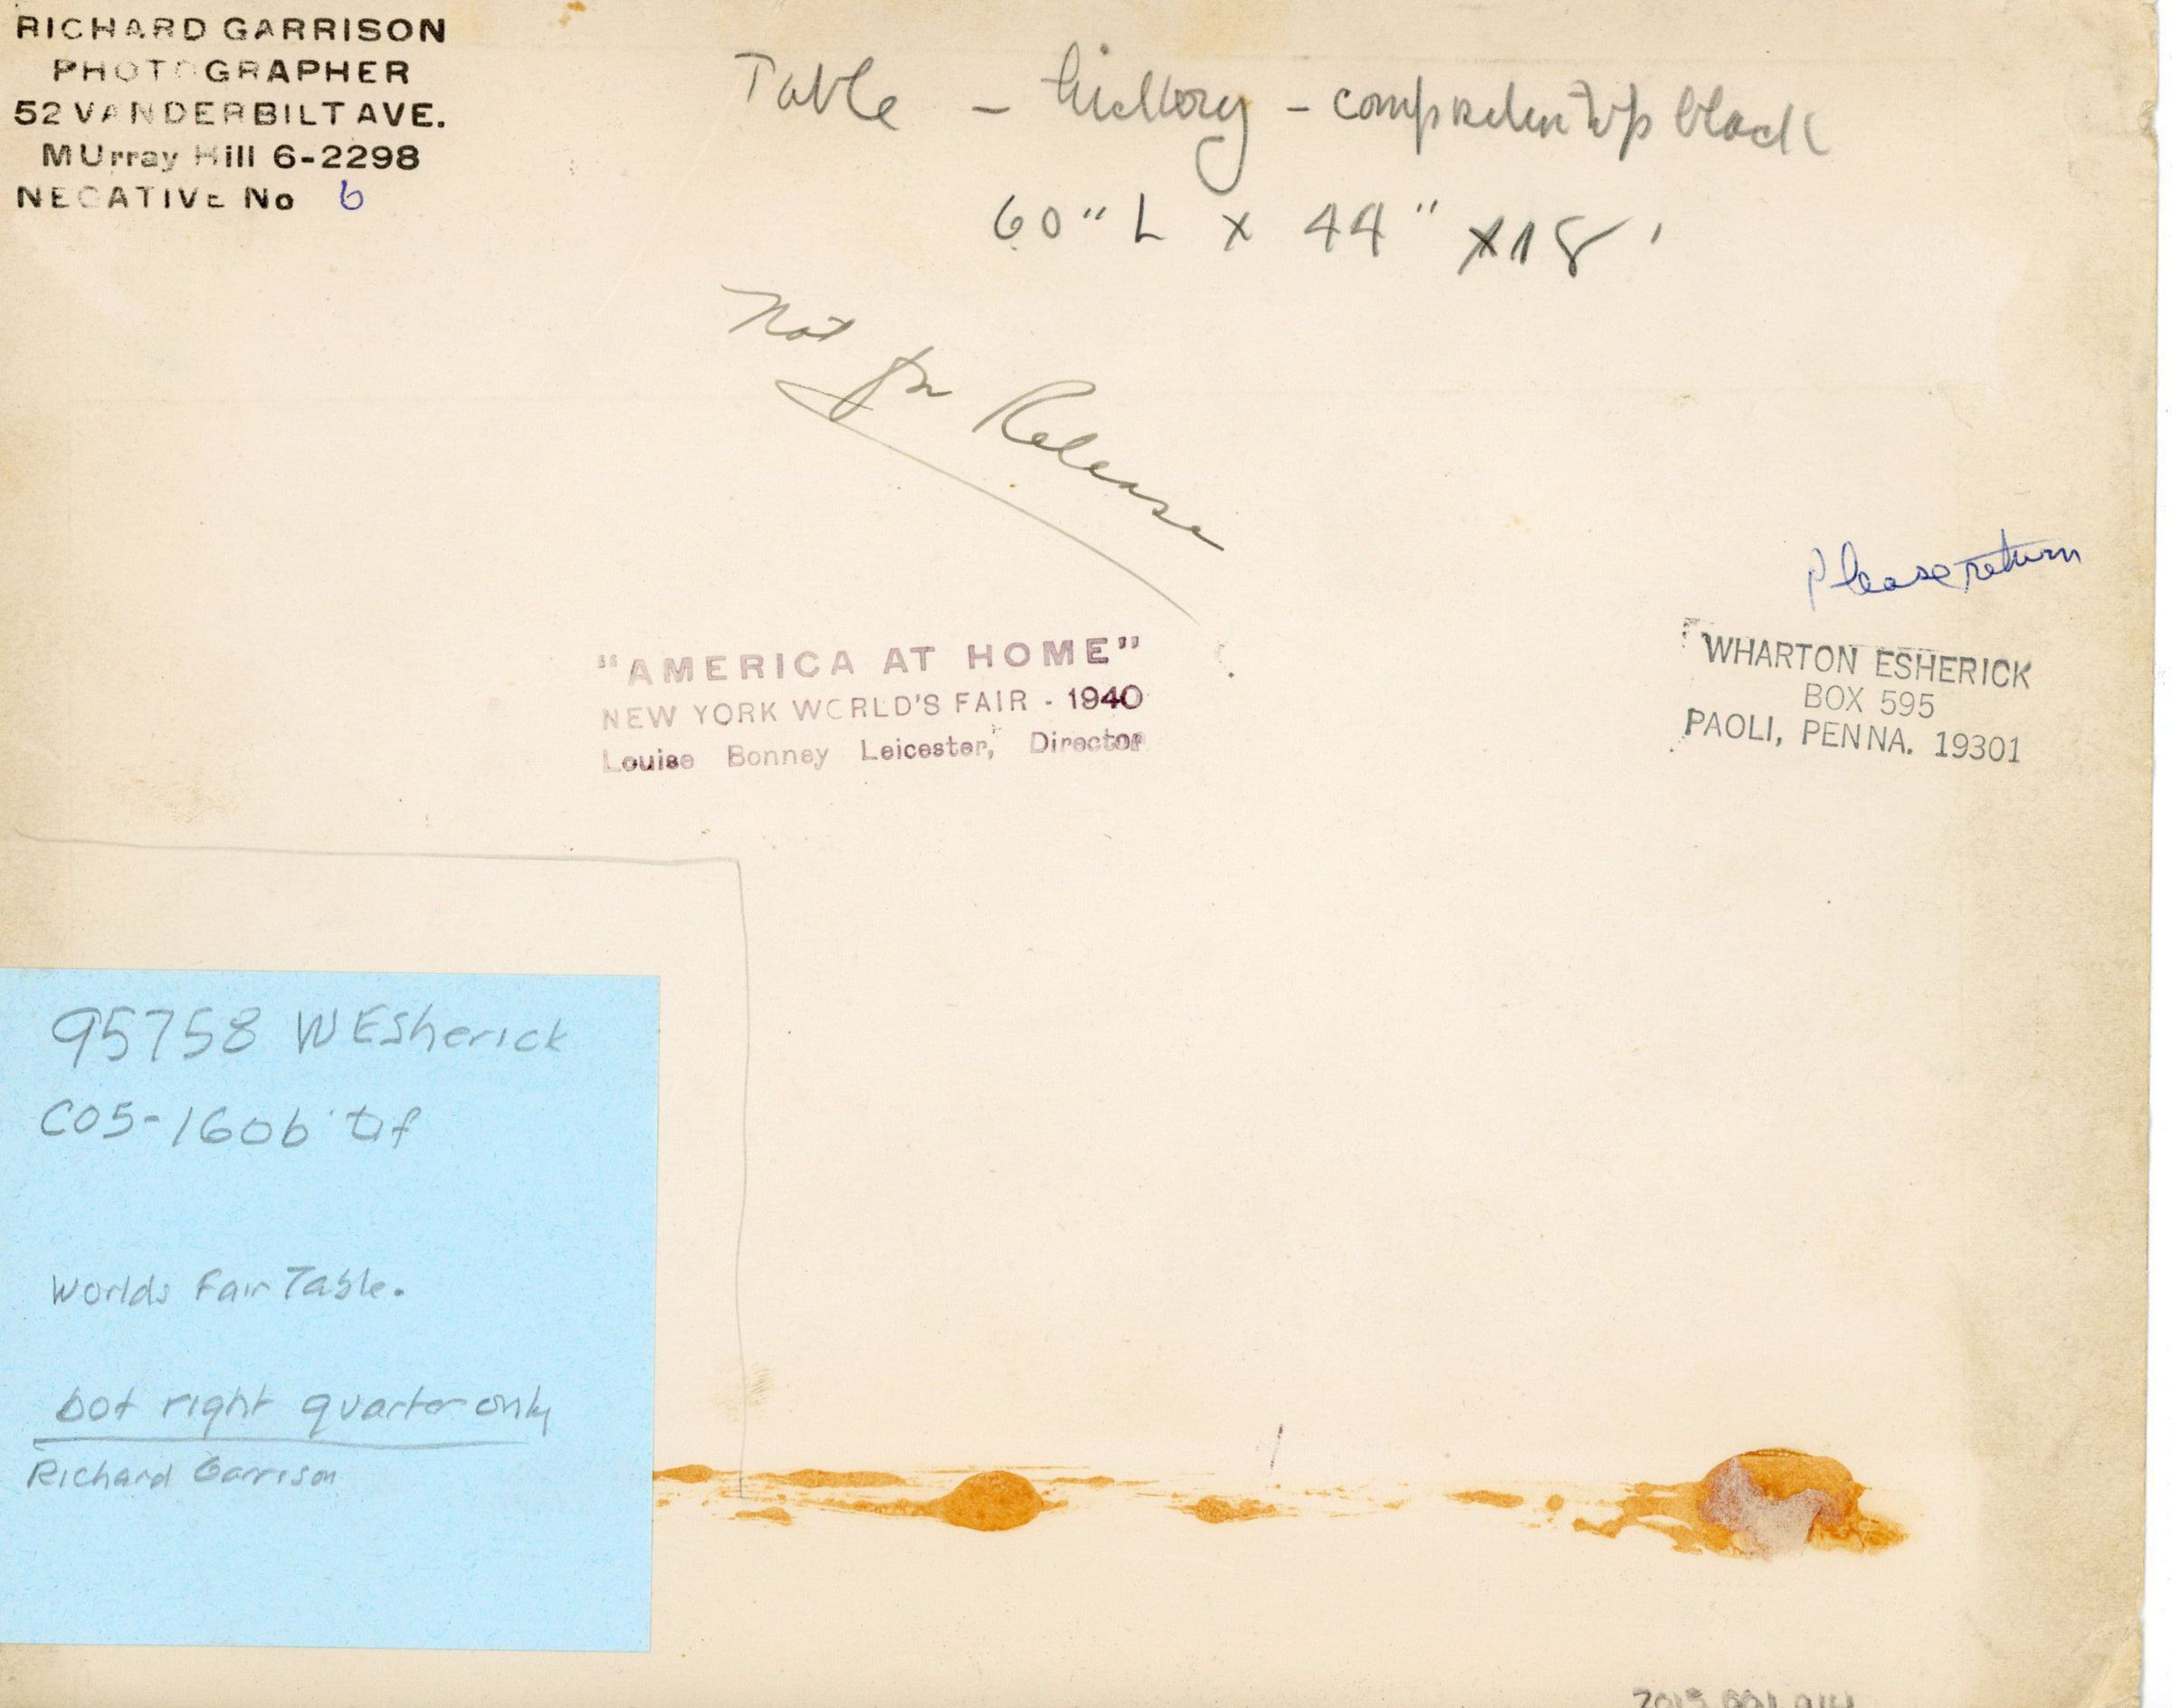 RICHARD GARRISON
PHOTOGRAPHER
52 VANDERBILT AVE.
MUrray Hill 6-2298
NEGATIVE No 6
Table - hickory - top black
60" L x 44" x 18'
Not for Release
"AMERICA AT HOME"
NEW YORK WORLD'S FAIR - 1940
Louise Bonney Leicester, Director
Please return
WHARTON ESHERICK
BOX 595
PAOLI, PENNA. 19301
95758 WEsherick
C05-160b tif
Worlds Fair Table.
bot right quarter only
Richard Garrison